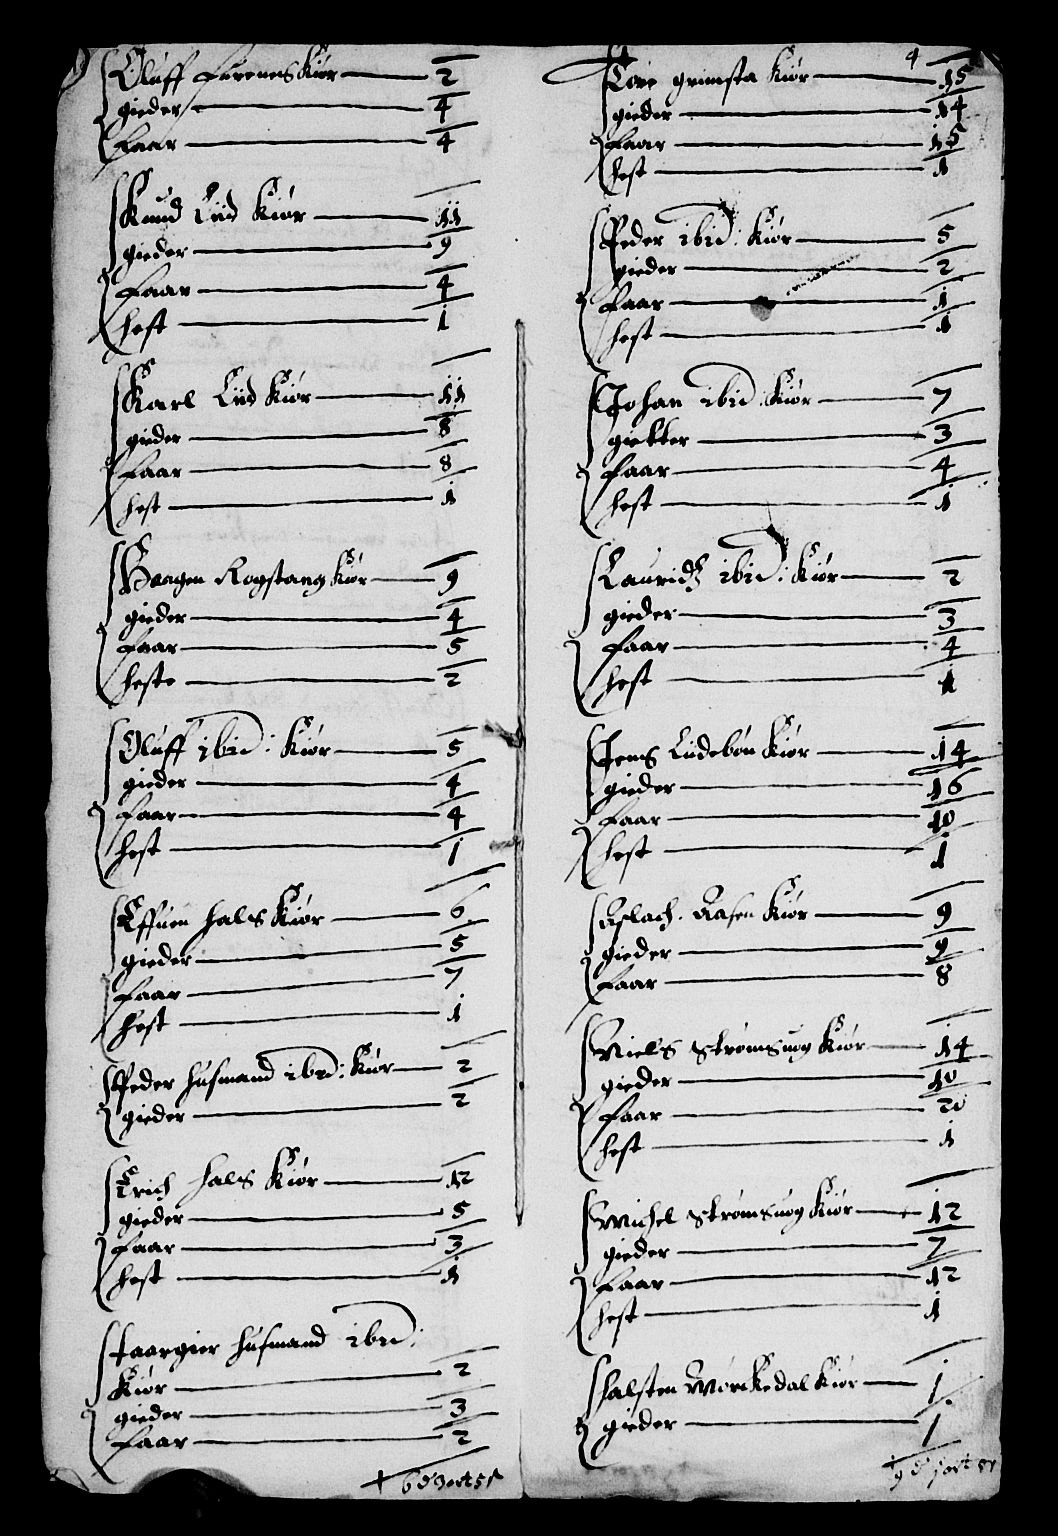 Oluff Furenes Kiør 2
gieder 4
faar 4
Knud Liid Kiør 11
gieder 9
faar 4
hest 1
Karl Liid Kiør 11
gieder 8
faar 8
hest 1
Haagen Rogstang Kiør 9
gieder 4
faar 5
heste 2
Oluff ibid: Kiør 5
gieder 4
faar 4
hest 1
Effuen Hals Kiør 6
gieder 5
faar 7
hest 1
Peder husmand ibid: Kiør 2
gieder 2
Erich Hals Kiør 12
gieder 5
faar 3
hest 1
Taargier husmand ibid:
Kiør 2
gieder 3
faar 2
4
Tore grimsta Kiør 15
gieder 14
faar 15
hest 1
Peder ibid: Kiør 5
gieder 2
faar 1
hest 1
Johan ibid: Kiør 7
giedker 3
faar 4
hest 1
Lauridz ibid: Kiør 2
gieder 3
faar 4
hest 1
Jens Liidebøn Kiør 14
gieder 16
faar 10
hest 1
Aslach Aasen Kiør 9
gieder 9
faar 8
Niels Strømsuog Kiør 14
gieder 10
faar 20
hest 1
Michel Strømsuog Kiør 12
gieder 7
faar 12
hest 1
Halsten Wørckedal Kiør 1
gieder 1